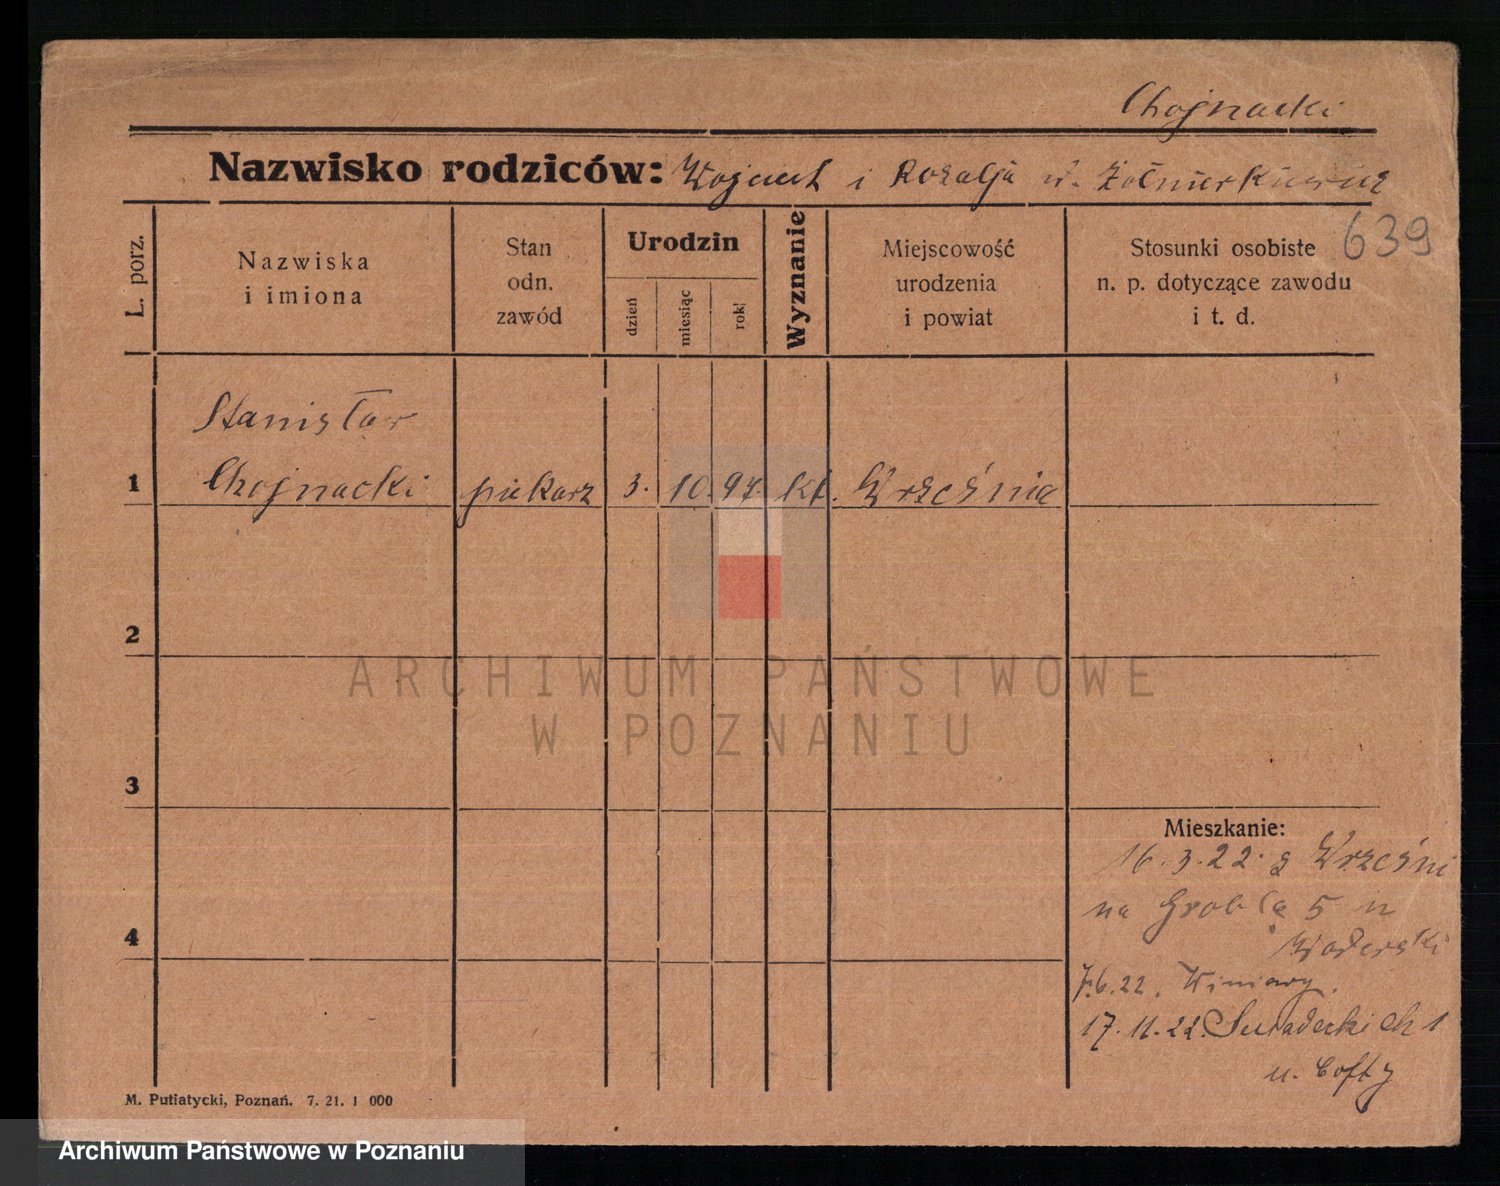 Chojnacki
Nazwisko rodziców: Wojciech i Rozalja Żołnierkiewicz
639
L. porz.
Nazwiska
i imiona
Stan
odn.
zawód
Urodzin
dzień
miesiąc
rok
Wyznanie
Miejscowość
urodzenia
i powiat
Stosunki osobiste
n. p. dotyczące zawodu
i t. d.
Stanisław
1 Chojnacki piekarz 3. 10. 97. kt. Września
2
3
4
Mieszkanie:
16.3.22. z Wrześni
na Grobla 5 u
7.6.22. Winiary.
17.11.22.
u.
M. Putiatycki, Poznań. 7. 21. 1 000
ARCHIWUM PAŃSTWOWE
W POZNANIU
Archiwum Państwowe w Poznaniu